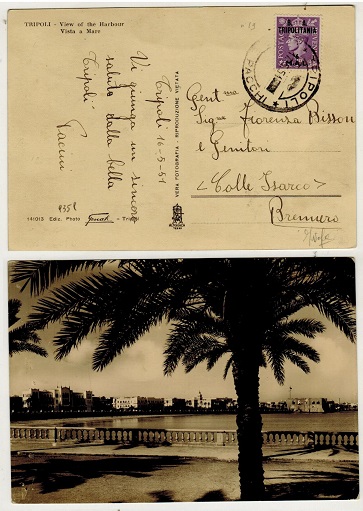 TRIPOLI - View of the Harbour
Vista a Mare
Vi giunga un sincero
saluto dalla bella
Tripoli
Pacini
Tripoli 16-5-51
VERA FOTOGRAFIA - RIPRODUZIONE VIETATA
TRIPOLITANIA
TRIPOLI
PACCHI
Gent.ma
Sig.na Fiorenza Bisson
e Genitori
<Colle Isarco>
Brennero
131013 Ediz. Photo